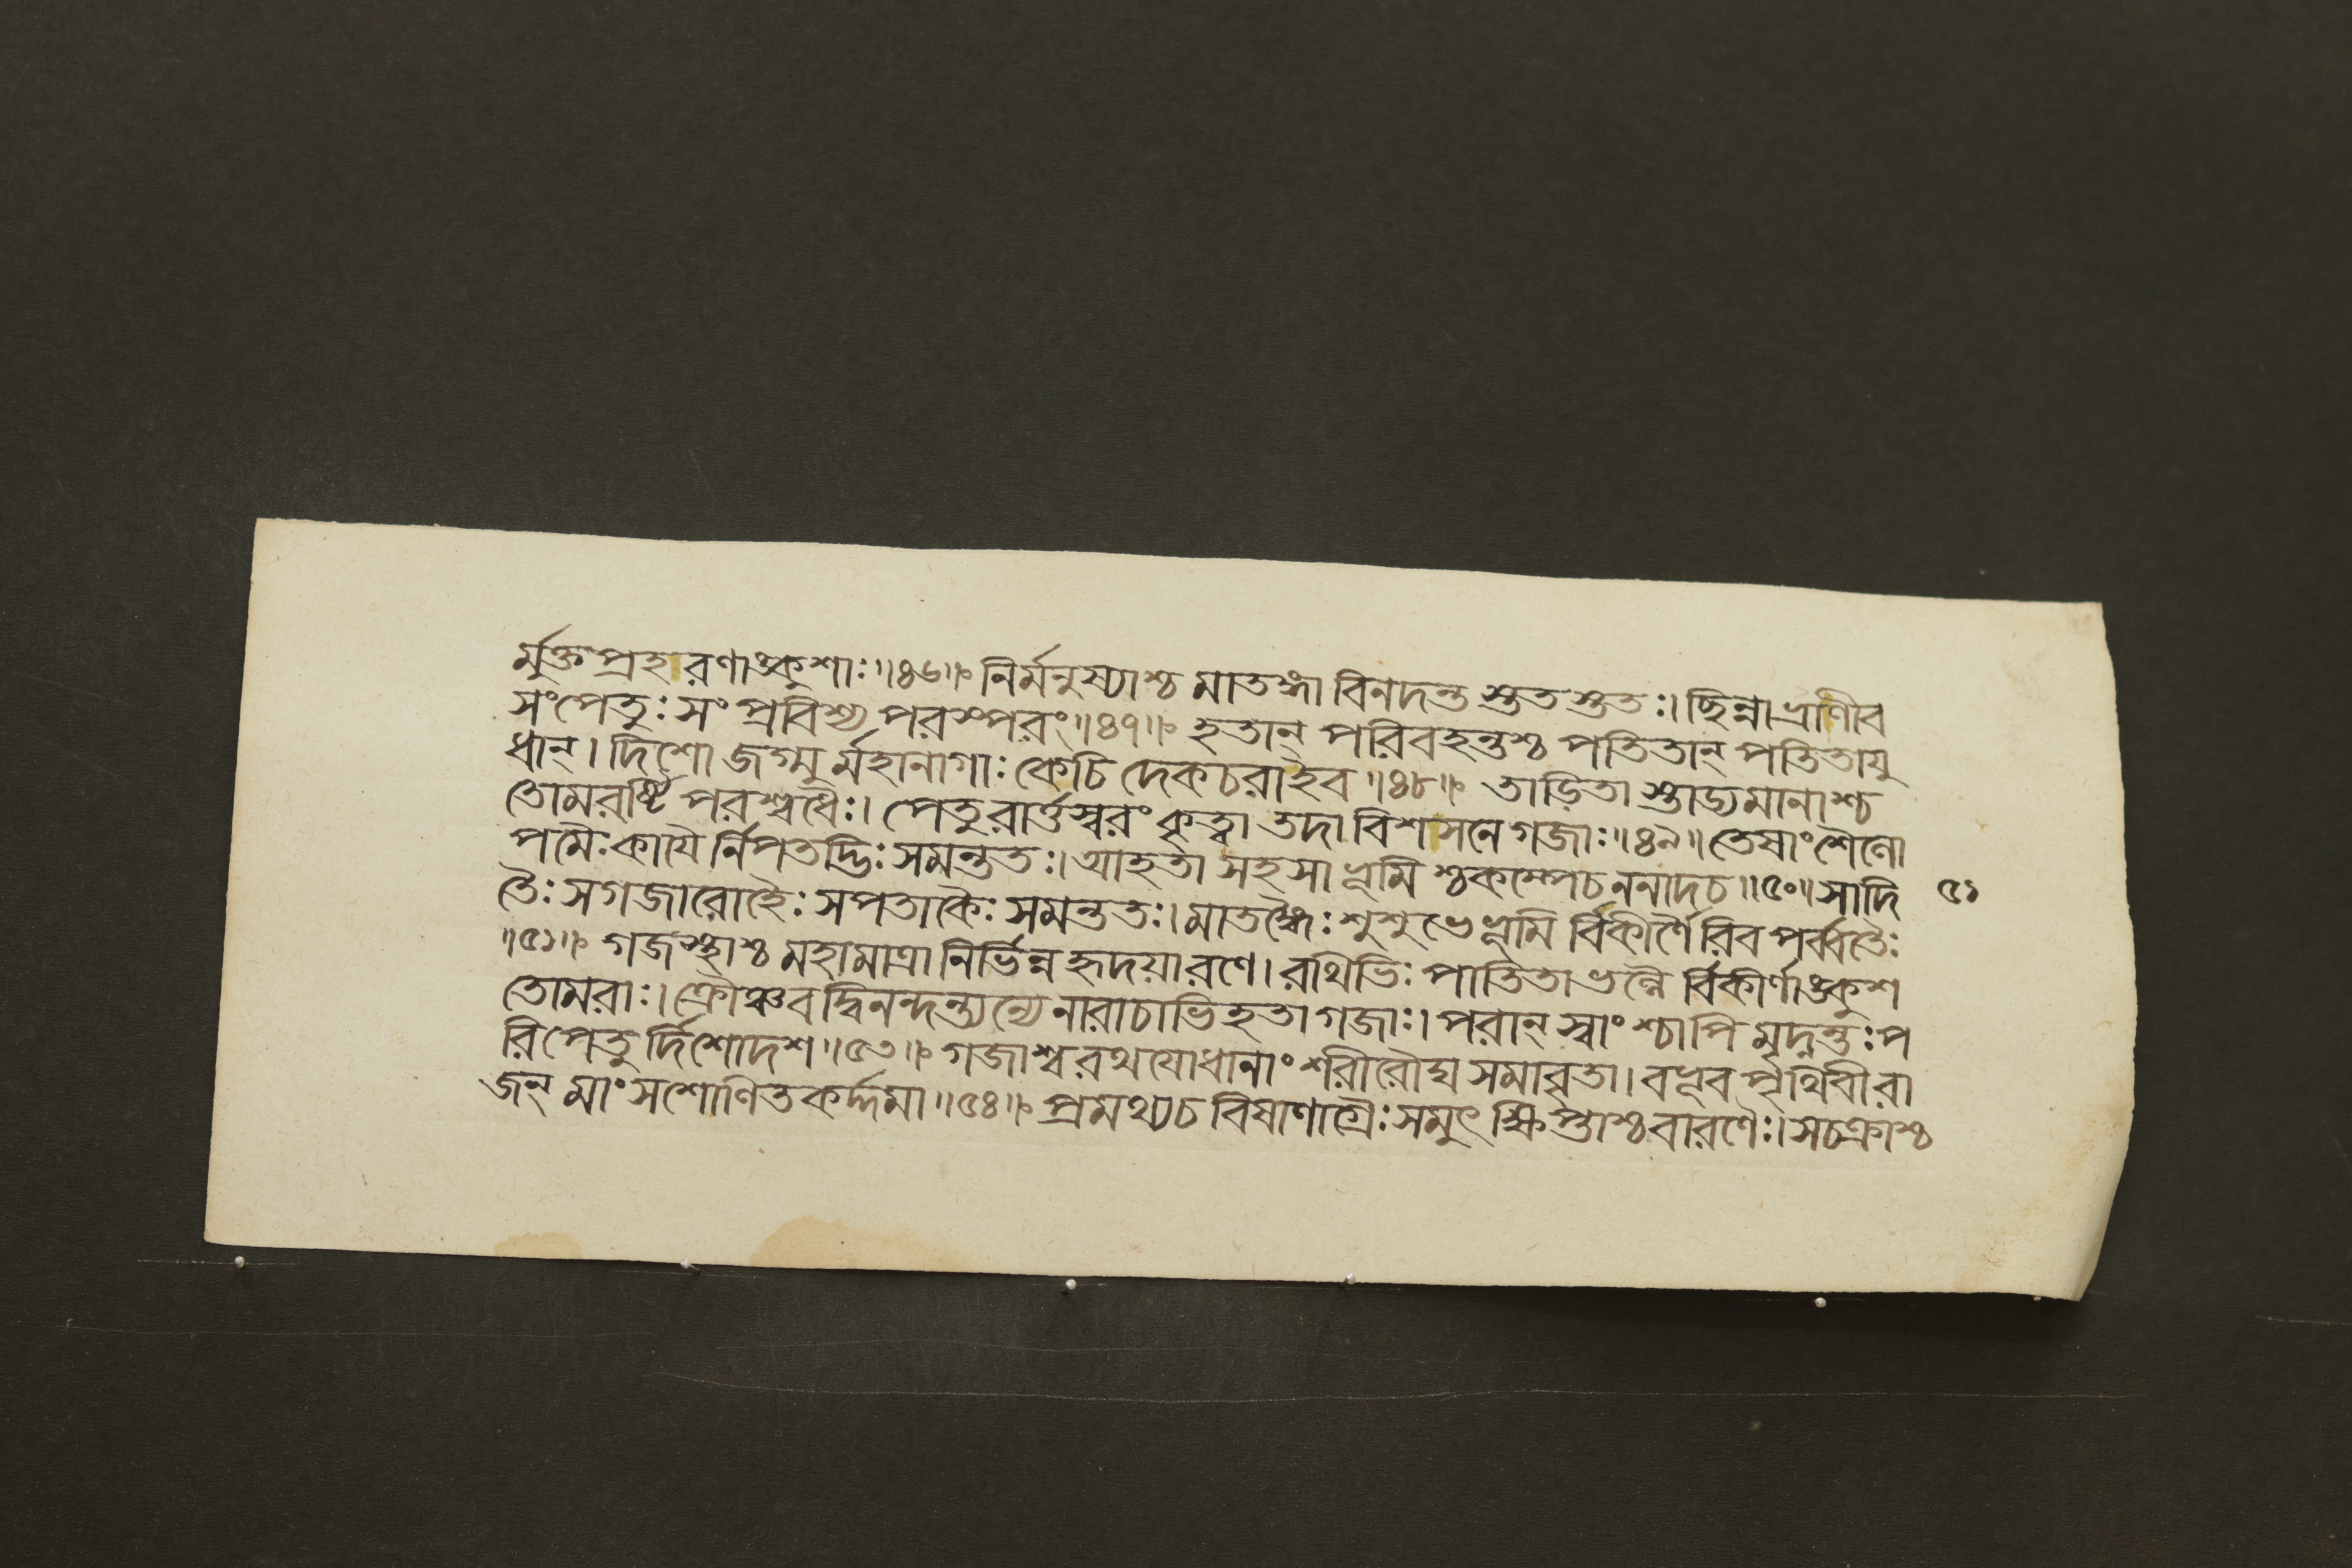 র্মুক্তপ্রহারণাঙ্কুশাঃ॥৪৬॥ নির্মনুষ্যাশ্চ মাতঙ্গা বিনদন্ত স্তুত স্তুতঃ। ছিন্নাভ্রাণীব
সংপেতুঃ সংপ্রবিশ্য পরস্পরং॥৪৭॥ হতান্ পরিবহন্তশ্চ পতিতান্ পতিতায়ু
ধান্। দিশো জগ্মু র্মহানাগাঃ কেচি দেকচরাইব॥৪৮॥ তাড়িতা স্তাড্যমানাশ্চ
তোমরর্ষ্টি পরশ্বধৈঃ। পেতুরার্ত্তস্বরং কৃত্বা তদা বিশসনে গজাঃ॥৪৯॥ তেষাং শৈলো
পমৈঃ কায়ৈ র্নিপতদ্ভিঃ সমন্ততঃ। আহতা সহসা ভূমি শ্চকম্পেচ ননাদচ॥৫০॥ সাদি ৫১
তৈঃ সগজারোহৈঃ সপতাকৈঃ সমন্ততঃ। মাতঙ্গৈঃ শুশুভে ভূমি র্বিকীর্ণৈ রিব পর্ব্বতৈঃ
॥৫১॥ গজস্থাশ্চ মহামাত্রা নির্ভিন্ন হৃদয়ারণে। রথিভিঃ পাতিতা ভল্লৈ র্বিকীর্ণাঙ্কুশ
তোমরাঃ। ক্রৌঞ্চবদ্বিনন্দন্ত্যন্যে নারাচাভিহতা গজাঃ। পরান্ স্বাং শ্চাপি মৃদ্নন্তঃ প
রিপেতু র্দিশোদশ॥৫৩॥ গজাশ্বরথযোধানাং শরীরৌঘ সমাবৃতা। বভূব র্পৃথিবী রা
জন্ মাংসশোণিতকর্দ্দমা॥৫৪॥ প্রমথ্যচ বিষাণাগ্রৈঃ সমুৎ ক্ষিপ্তাশ্চ বারণৈঃ। সচক্রাশ্চ